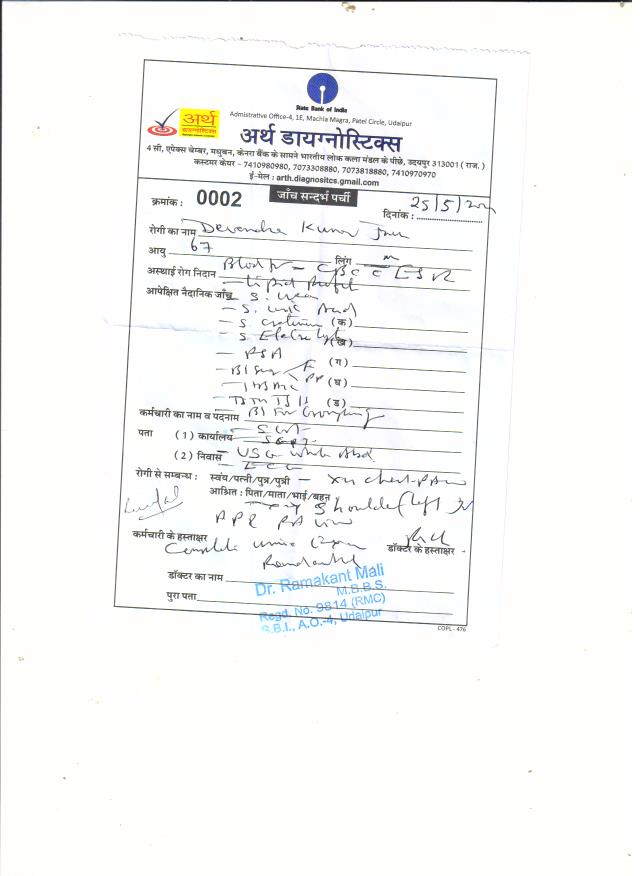 State Bank of India
Admistrative Office-4, 1E, Machla Magra, Patel Circle, Udaipur
अर्थ
अर्थ डायग्नोस्टिक्स
4 सी, एपेक्स चेम्बर, मधुबन, केनरा बैंक के सामने भारतीय लोक कला मंडल के पीछे, उदयपुर 313001 ( राज. )
कस्टमर केयर – 7410980980, 7073308880, 7073818880, 7410970970
ई-मेल : arth.diagnosites.gmail.com
क्रमांक : 0002 जाँच सन्दर्भ पर्ची
दिनांक : 25/5/
रोगी का नाम Devendra Kumar
आयु 67 लिंग m
अस्थाई रोग निदान Blood – CBC ESR
– Lipid Profil
आपेक्षित नैदानिक जाँच – S. Urea
– S. Uric Acid
– S (क)
– S (ख)
– PSA
(ग)
PP (घ)
(ड)
कर्मचारी का नाम व पदनाम – Bl Grouping
पता (1) कार्यालय
– SGPT
(2) निवास – USG Whole Abd
– ECG
रोगी से सम्बन्ध : स्वंय/पत्नी/पुत्र/पुत्री – Chest-PA
आश्रित : पिता/माता/भाई/बहन
Shoulder (left
कर्मचारी के हस्ताक्षर डॉक्टर के हस्ताक्षर
डॉक्टर का नाम
Dr. Ramakant Mali
M.B.B.S.
पुरा पता
Regd. No. 9814 (RMC)
S.B.I., A.O.-4, Udaipur
COPL - 476